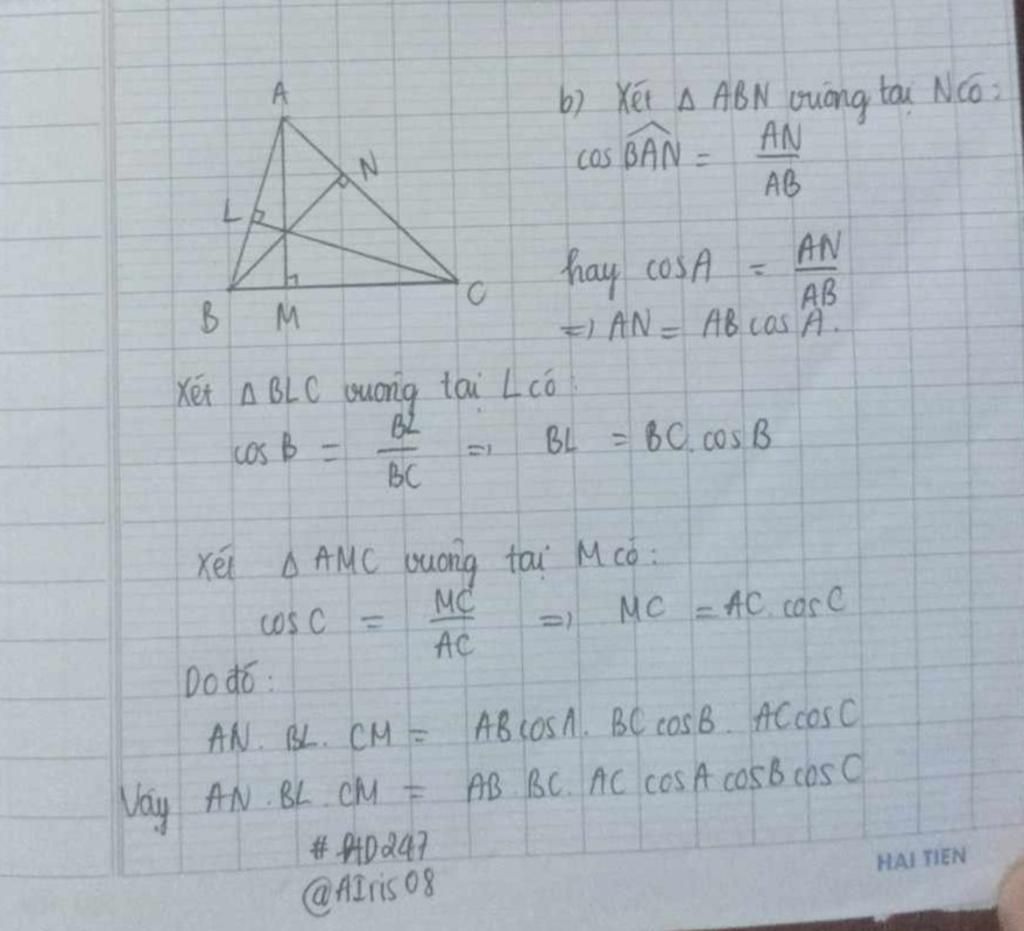 A
N
L
B
M
C
b) Xét Δ ABN vuông tại N có:
cos BAN = AN / AB
hay cosA = AN / AB
=> AN = AB cos A.
Xét Δ BLC vuông tại L có:
cos B = BL / BC => BL = BC. cosB
Xét Δ AMC vuông tại M có:
cosC = MC / AC => MC = AC. cosC
Do đó:
AN. BL. CM = AB cosA. BC cosB. AC cosC
Vậy AN. BL. CM = AB. BC. AC cosA cosB cosC
@AIris08
HAI TIEN